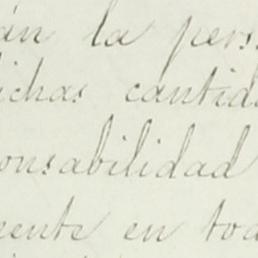 án la pers
ichas cantid
onsabilidad
mente en tod